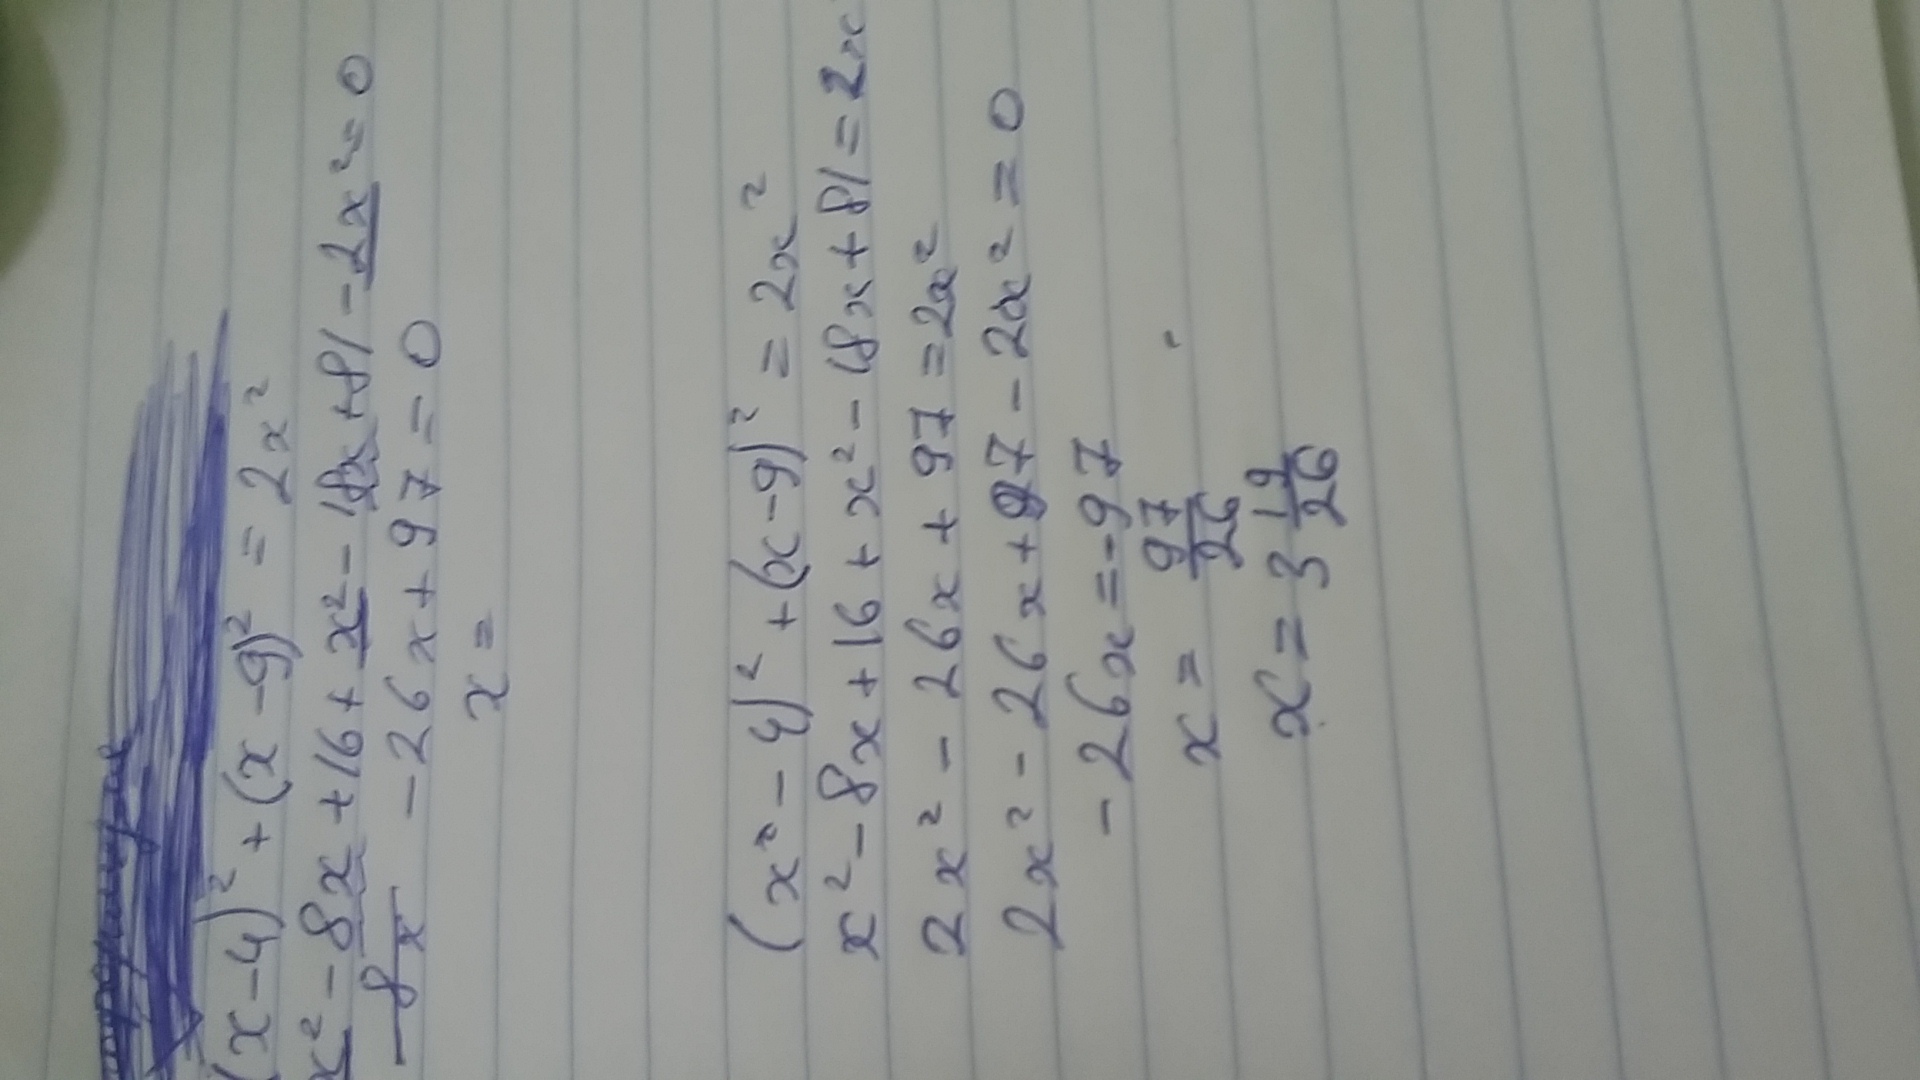 (x-4)² + (x-9)² = 2x²
x² - 8x + 16 + x² - 18x + 81 - 2x² = 0
-8x - 26x + 97 = 0
x =
(x² - 4)² + (x - 9)² = 2x²
x² - 8x + 16 + x² - 18x + 81 = 2x
2x² - 26x + 97 = 2x²
2x² - 26x + 97 - 2x² = 0
- 26x = -97
x = 97/26
x = 3 19/26